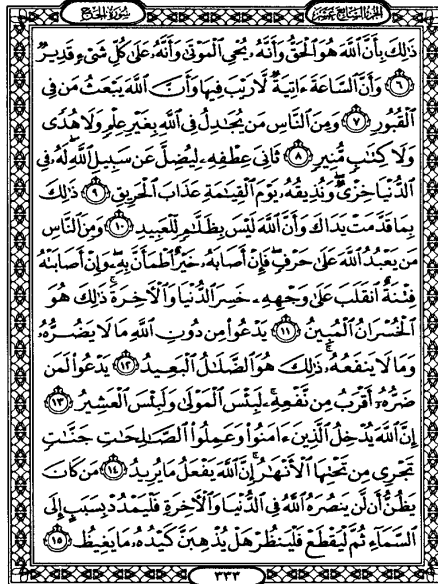 سورة الحج
الجزء السابع عشر
ذَٰلِكَ بِأَنَّ ٱللَّهَ هُوَ ٱلْحَقُّ وَأَنَّهُۥ يُحْىِ ٱلْمَوْتَىٰ وَأَنَّهُۥ عَلَىٰ كُلِّ شَىْءٍ قَدِيرٌ
٦ وَأَنَّ ٱلسَّاعَةَ ءَاتِيَةٌ لَّا رَيْبَ فِيهَا وَأَنَّ ٱللَّهَ يَبْعَثُ مَن فِى
ٱلْقُبُورِ ٧ وَمِنَ ٱلنَّاسِ مَن يُجَٰدِلُ فِى ٱللَّهِ بِغَيْرِ عِلْمٍ وَلَا هُدًى
وَلَا كِتَٰبٍ مُّنِيرٍ ٨ ثَانِىَ عِطْفِهِۦ لِيُضِلَّ عَن سَبِيلِ ٱللَّهِ لَهُۥ فِى
ٱلدُّنْيَا خِزْىٌ وَنُذِيقُهُۥ يَوْمَ ٱلْقِيَٰمَةِ عَذَابَ ٱلْحَرِيقِ ٩ ذَٰلِكَ
بِمَا قَدَّمَتْ يَدَاكَ وَأَنَّ ٱللَّهَ لَيْسَ بِظَلَّٰمٍ لِّلْعَبِيدِ ١٠ وَمِنَ ٱلنَّاسِ
مَن يَعْبُدُ ٱللَّهَ عَلَىٰ حَرْفٍ فَإِنْ أَصَابَهُۥ خَيْرٌ ٱطْمَأَنَّ بِهِۦ وَإِنْ أَصَابَتْهُ
فِتْنَةٌ ٱنقَلَبَ عَلَىٰ وَجْهِهِۦ خَسِرَ ٱلدُّنْيَا وَٱلْءَاخِرَةَ ذَٰلِكَ هُوَ
ٱلْخُسْرَانُ ٱلْمُبِينُ ١١ يَدْعُوا۟ مِن دُونِ ٱللَّهِ مَا لَا يَضُرُّهُۥ
وَمَا لَا يَنفَعُهُۥ ذَٰلِكَ هُوَ ٱلضَّلَٰلُ ٱلْبَعِيدُ ١٢ يَدْعُوا۟ لَمَن
ضَرُّهُۥٓ أَقْرَبُ مِن نَّفْعِهِۦ لَبِئْسَ ٱلْمَوْلَىٰ وَلَبِئْسَ ٱلْعَشِيرُ ١٣
إِنَّ ٱللَّهَ يُدْخِلُ ٱلَّذِينَ ءَامَنُوا۟ وَعَمِلُوا۟ ٱلصَّٰلِحَٰتِ جَنَّٰتٍ
تَجْرِى مِن تَحْتِهَا ٱلْأَنْهَٰرُ إِنَّ ٱللَّهَ يَفْعَلُ مَا يُرِيدُ ١٤ مَن كَانَ
يَظُنُّ أَن لَّن يَنصُرَهُ ٱللَّهُ فِى ٱلدُّنْيَا وَٱلْءَاخِرَةِ فَلْيَمْدُدْ بِسَبَبٍ إِلَى
ٱلسَّمَآءِ ثُمَّ لْيَقْطَعْ فَلْيَنظُرْ هَلْ يُذْهِبَنَّ كَيْدُهُۥ مَا يَغِيظُ ١٥
٣٣٣